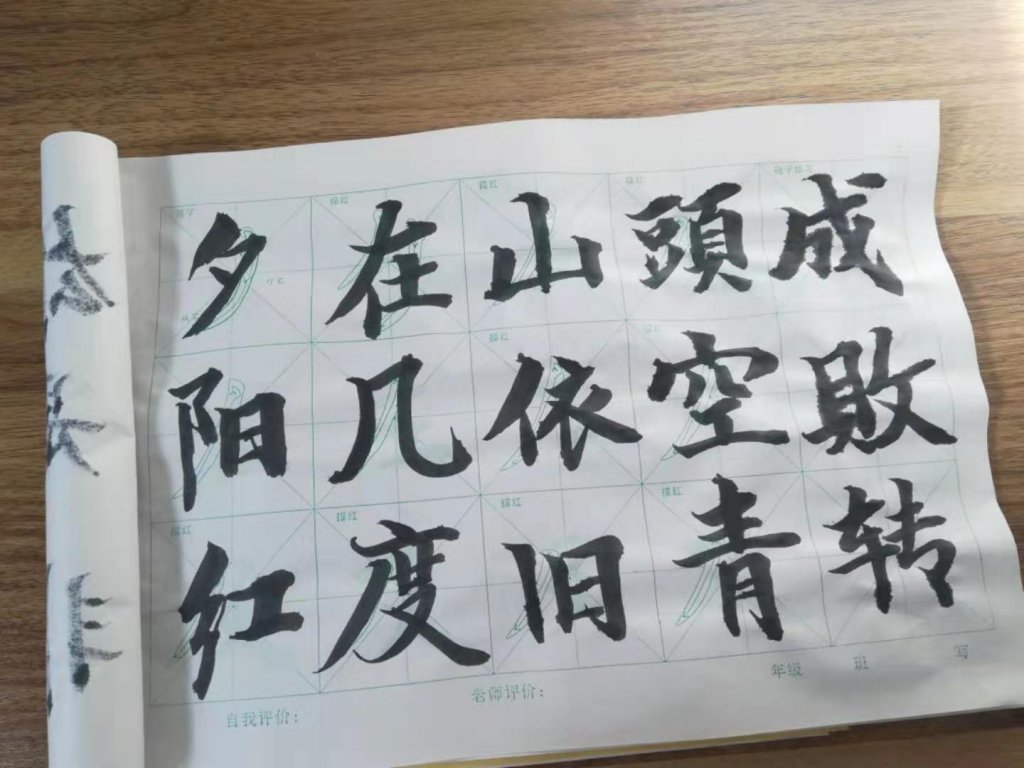 成败转
頭空青
山依旧
在几度
夕阳红
描红
描红
描红
描红
描红
描红
描红
自我评价：
老师评价：
年级 班 写